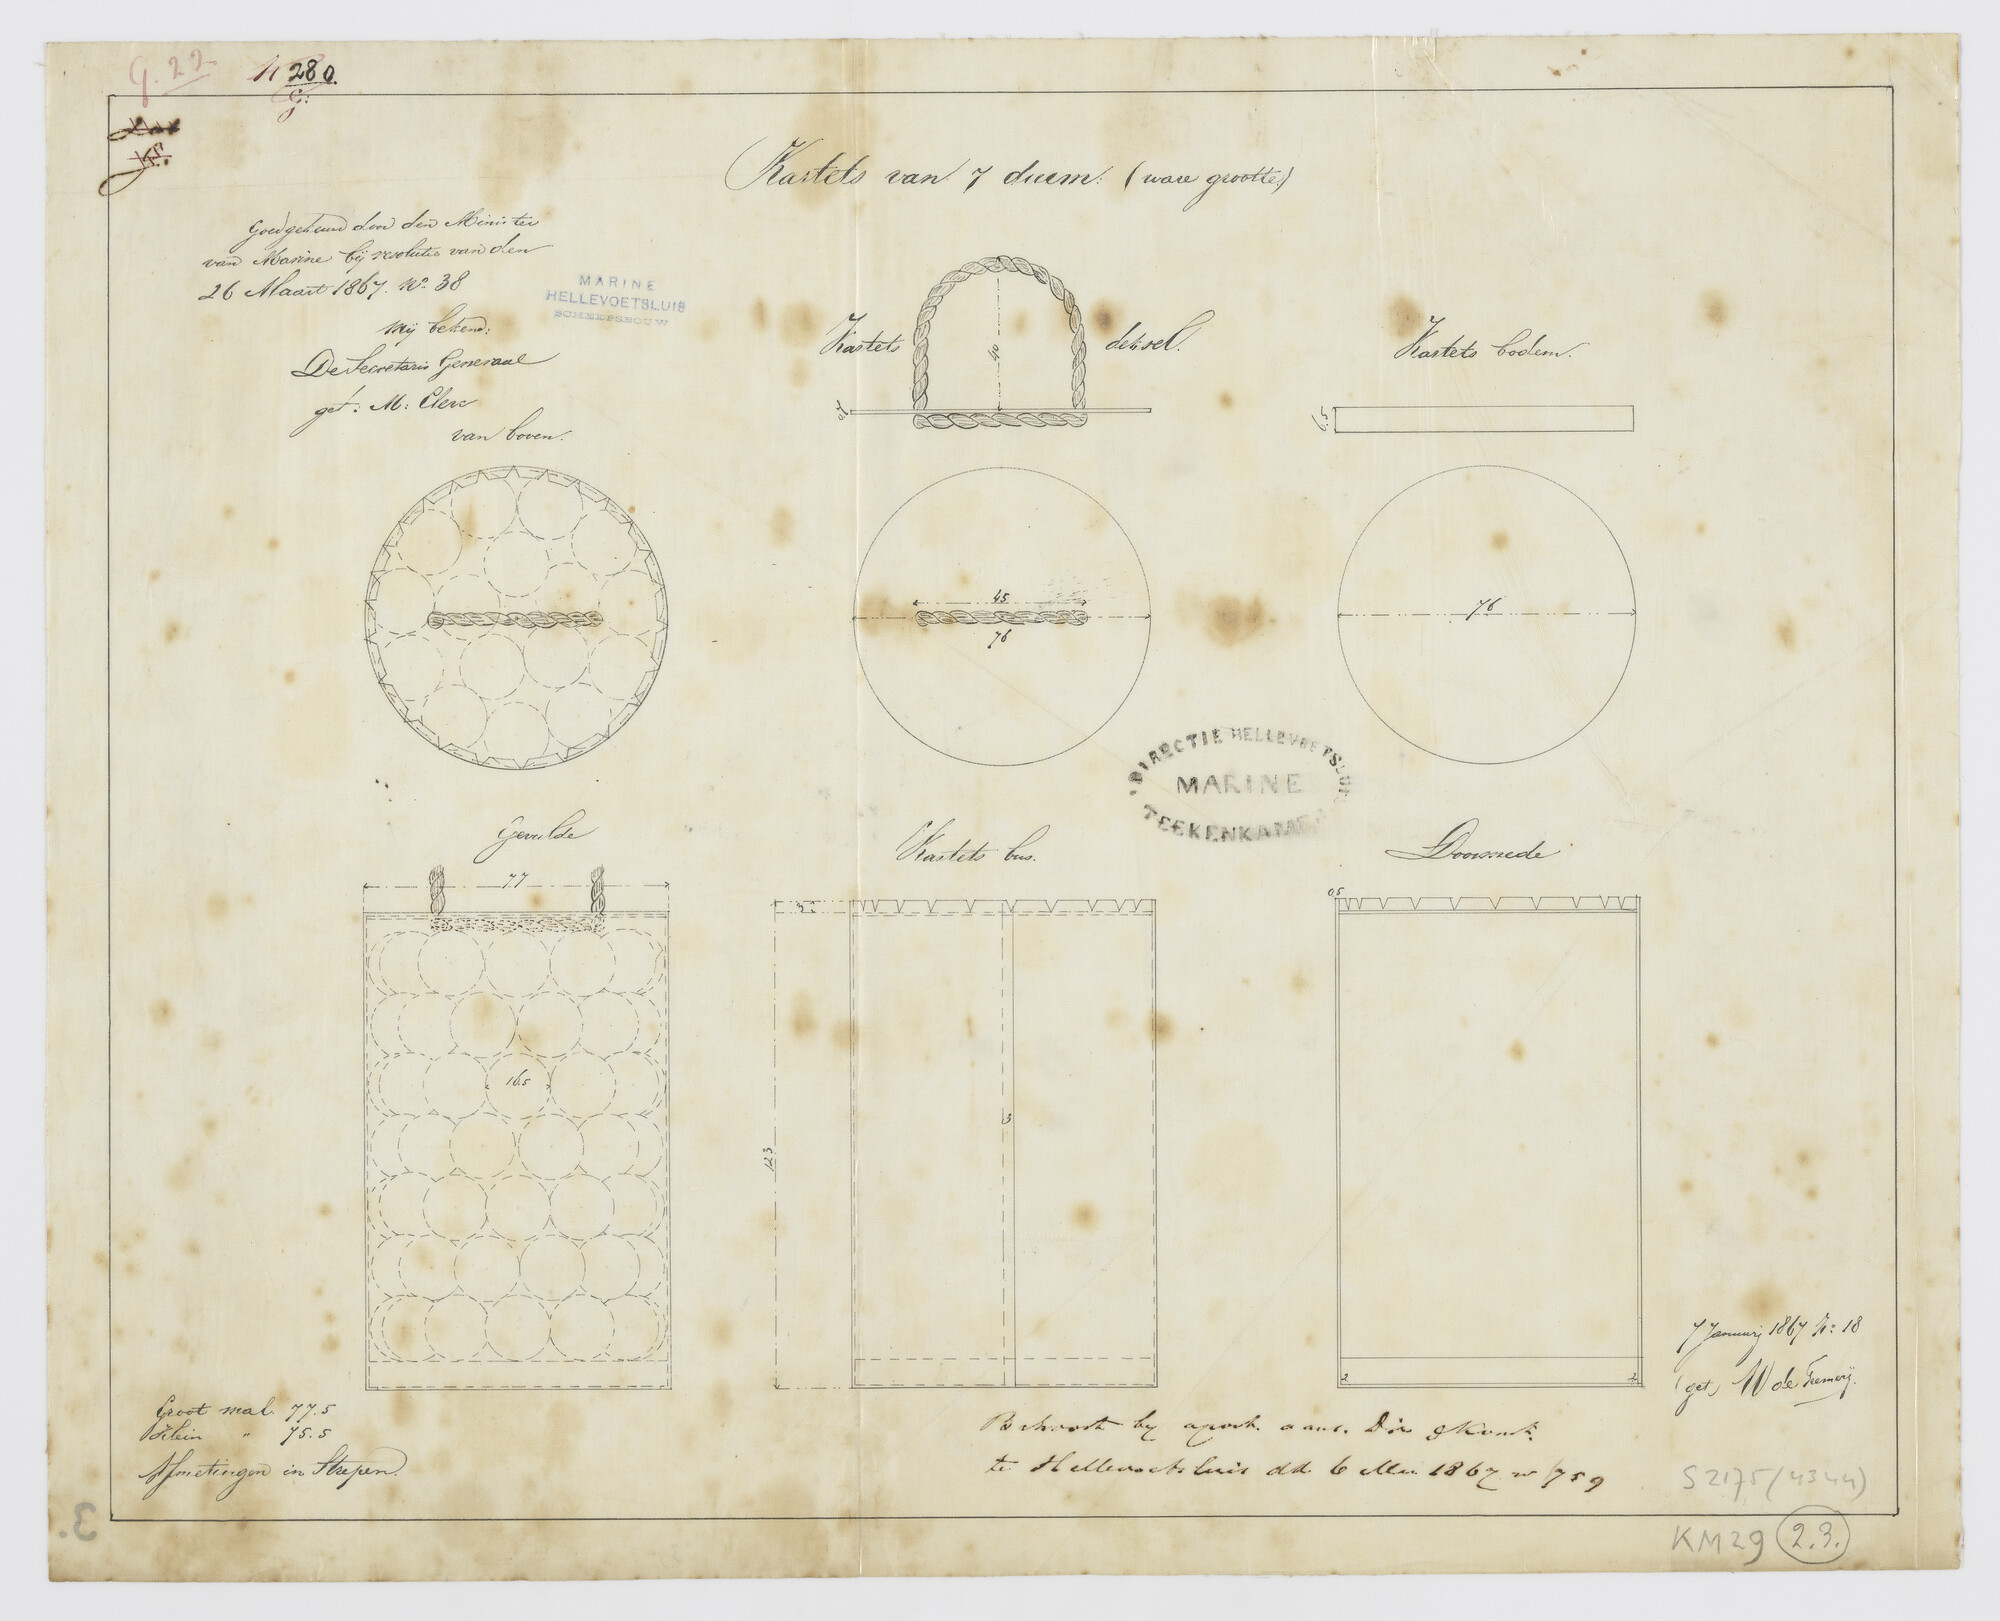 G. 22
N 280.
G:
Kartets van 7 duim: (ware grootte)
Goedgekeurd door den Minister
van Marine bij resolutie van den
26 Maart 1867. No. 38
Mij bekend:
De Secretaris Generaal
get: M: Clerc
MARINE
HELLEVOETSLUIS
SCHEEPSBOUW
van boven.
Kartets deksel.
40
07
Kartets bodem.
7.5
45
76
76
DIRECTIE HELLEVOETSLUIS
MARINE
TEEKENKAMER
Gevulde
77
16.5
Kartets bus.
3
123
3
Doorsnede
05
2
2
7 Januarij 1867 No: 18
(get) W de Fremerij.
Groot mal. 77.5
Klein " 75.5
Afmetingen in Strepen.
Behoort by apost. aan Dir &
te Hellevoetsluis dd. 6 Mei 1867 no 1759
S 2175 (4344)
KM29 2.3.
3.